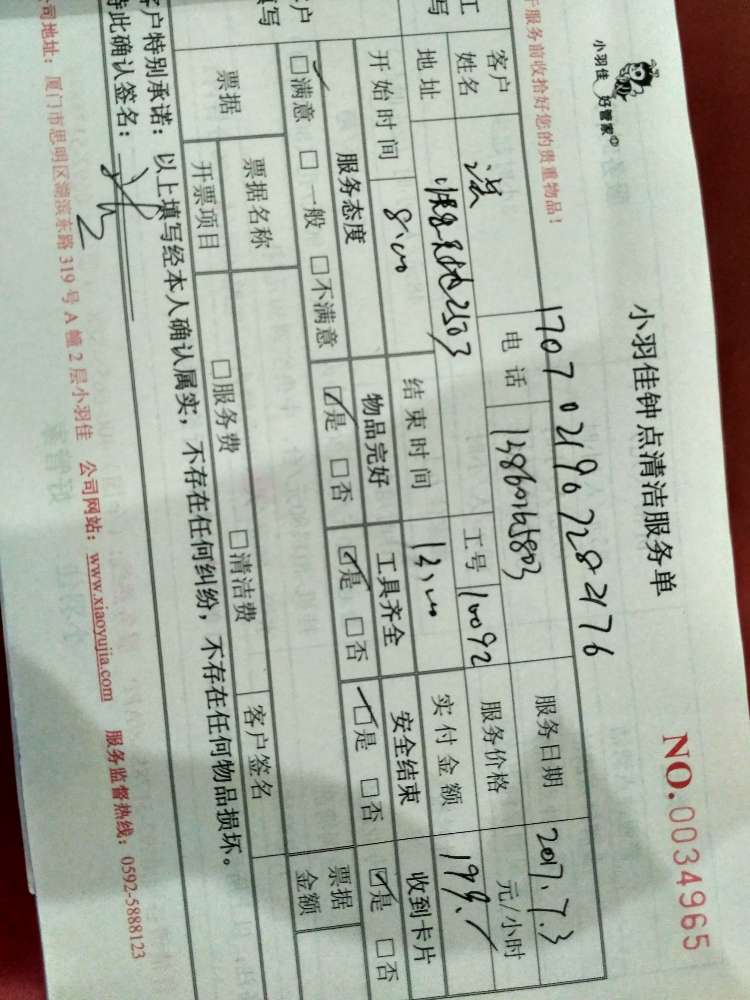 小羽佳 好管家
小羽佳钟点清洁服务单
NO.0034965
服务前收拾好您的贵重物品！
1707021907282176
客户
姓名
电话
服务日期 2017.7.3
地址 2503
工号 10092
服务价格 元/小时
开始时间 8:00
结束时间 12:00
实付金额
服务态度 物品完好 工具齐全 安全结束 收到卡片
☑满意 □一般 □不满意 ☑是 □否 ☑是 □否 ☑是 □否 ☑是 □否
票据 票据名称 □服务费 □清洁费 客户签名 票据金额
开票项目
客户特别承诺：以上填写经本人确认属实，不存在任何纠纷，不存在任何物品损坏。
特此确认签名：
公司地址：厦门市思明区湖滨东路319号A幢2层小羽佳 公司网站：www.xiaoyujia.com 服务监督热线：0592-5888123